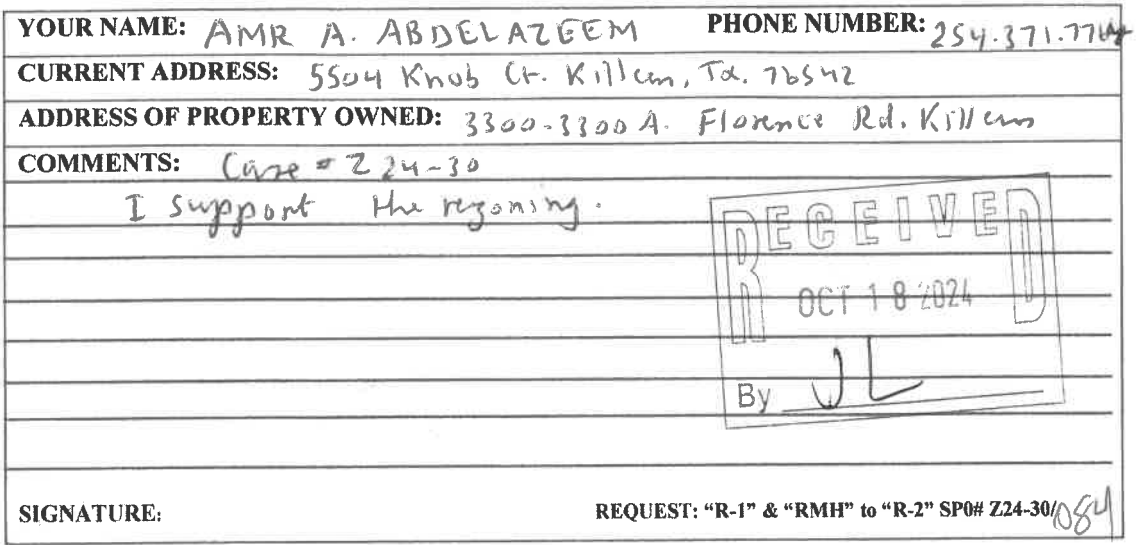 YOUR NAME: AMR A. ABDELAZEEM PHONE NUMBER: 254.371.77
CURRENT ADDRESS: 5504 Knob Ct. Killeen, Tx. 76542
ADDRESS OF PROPERTY OWNED: 3300-3300 A. Florence Rd. Killeen
COMMENTS: Case # Z24-30
I support the rezoning.
RECEIVED
OCT 18 2024
By JL
SIGNATURE: REQUEST: "R-1" & "RMH" to "R-2" SP0# Z24-30/084